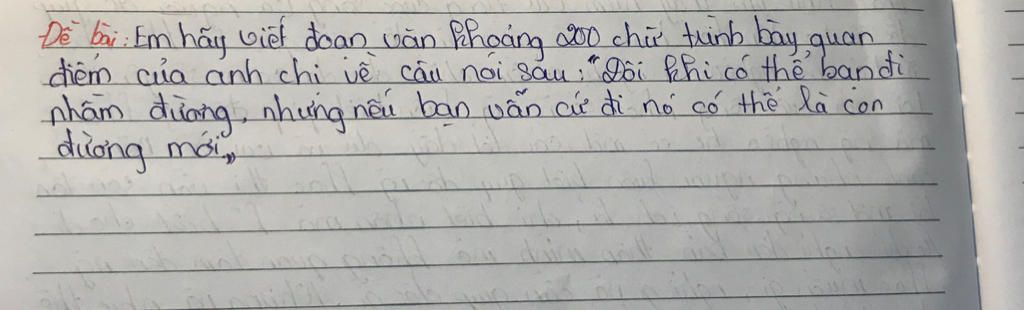 Đề bài: Em hãy viết đoạn văn khoảng 200 chữ trình bày quan
điểm của anh chị về câu nói sau: "Đôi khi có thể bạn đi
nhầm đường, nhưng nếu bạn vẫn cứ đi nó có thể là con
đường mới"